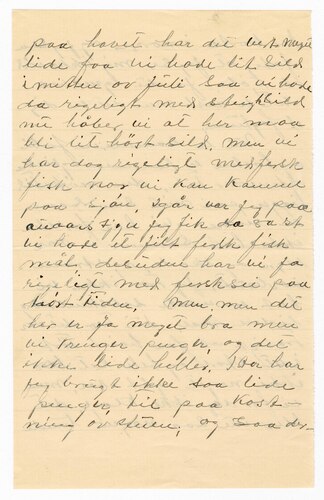 paa havet har det vert meget
lide faa vi hade lit Sild
i mitten ov Juli saa vi hade
da rigeligt med steigsild
nu håber vi at her maa
bli lit höst Sild, men vi
har dog rigeligt med fersk
fisk nor vi kan komme
paa Sjön, igår var jeg paa
sjön jeg fik saa at
vi hade et filt fersk fisk
mål, desuden har vi jo
rigeligt med fersksei paa
tiden, Men men det
her er ja meget bra men
vi trenger penger, og det
ikke lide heller, I Aar har
jeg brugt ikke saa lide
penger, til paa Kost-
ning ov stuen, og saa